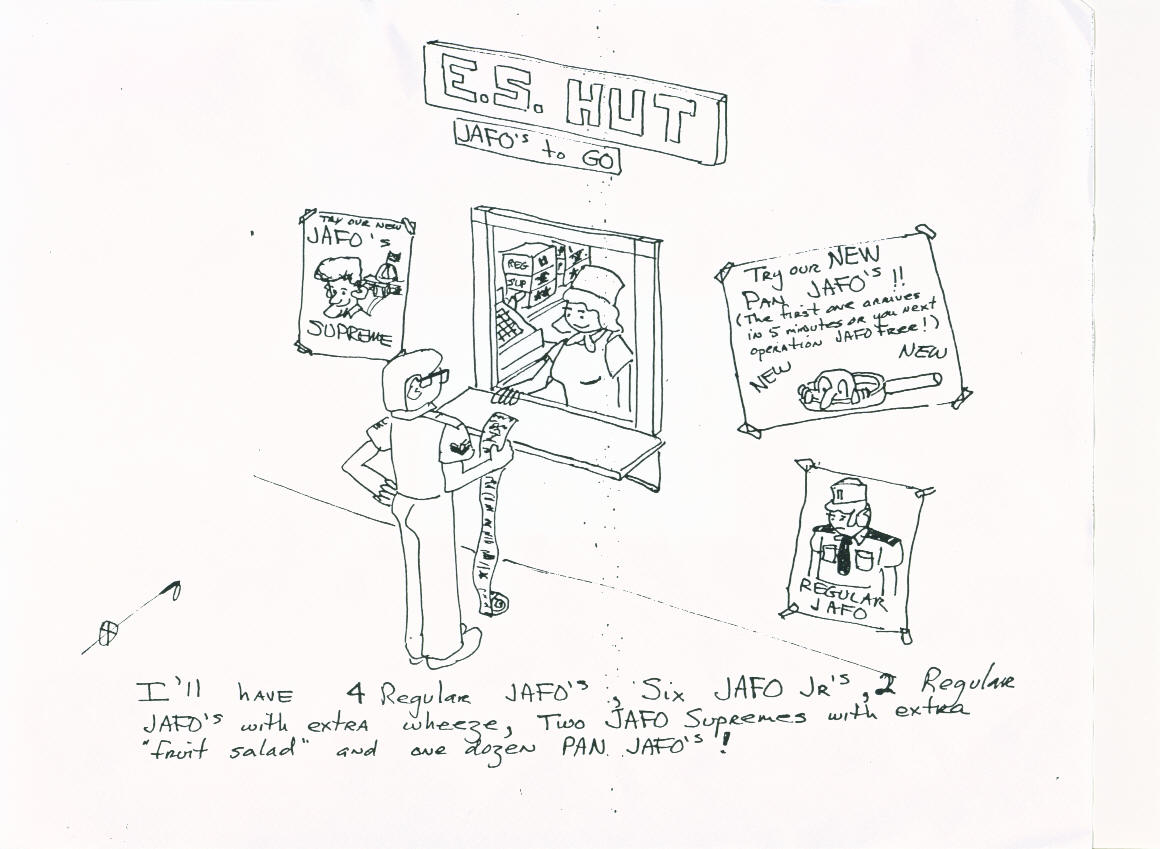 E.S. HUT
JAFO's to GO
TRY OUR NEW
JAFO's
SUPREME
REG
SUP
TRY OUR NEW
PAN JAFO's !!
(The first one arrives
in 5 minutes or you next
operation JAFO Free!)
NEW
NEW
REGULAR
JAFO
I'll HAVE 4 Regular JAFO's, Six JAFO Jr's, 2 Regular
JAFO's with extra wheeze, Two JAFO Supremes with extra
"fruit salad" and one dozen PAN JAFO's!